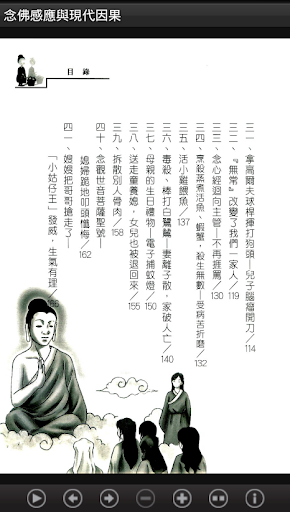 念佛感應與現代因果
目錄
三一、拿高爾夫球桿揮打狗頭—兒子腦瘤開刀／114
三二、『無常』改變了我們一家人／119
三三、念心經迴向主管—不再捱罵／130
三四、烹殺蒸煮活魚、蝦蟹，殺生無數—受病苦折磨／132
三五、活小雞餵魚／137
三六、毒殺、棒打白鷺鷥—妻離子散，家破人亡／140
三七、母親的生日禮物—電子捕蚊燈／150
三八、送走童養媳，女兒也被退回來／155
三九、拆散別人骨肉／158
四十、念觀世音菩薩聖號—
媳婦跪地叩頭懺悔／162
四一、嫂嫂把哥哥搶走了—
「小姑仔王」發威，生氣有理／